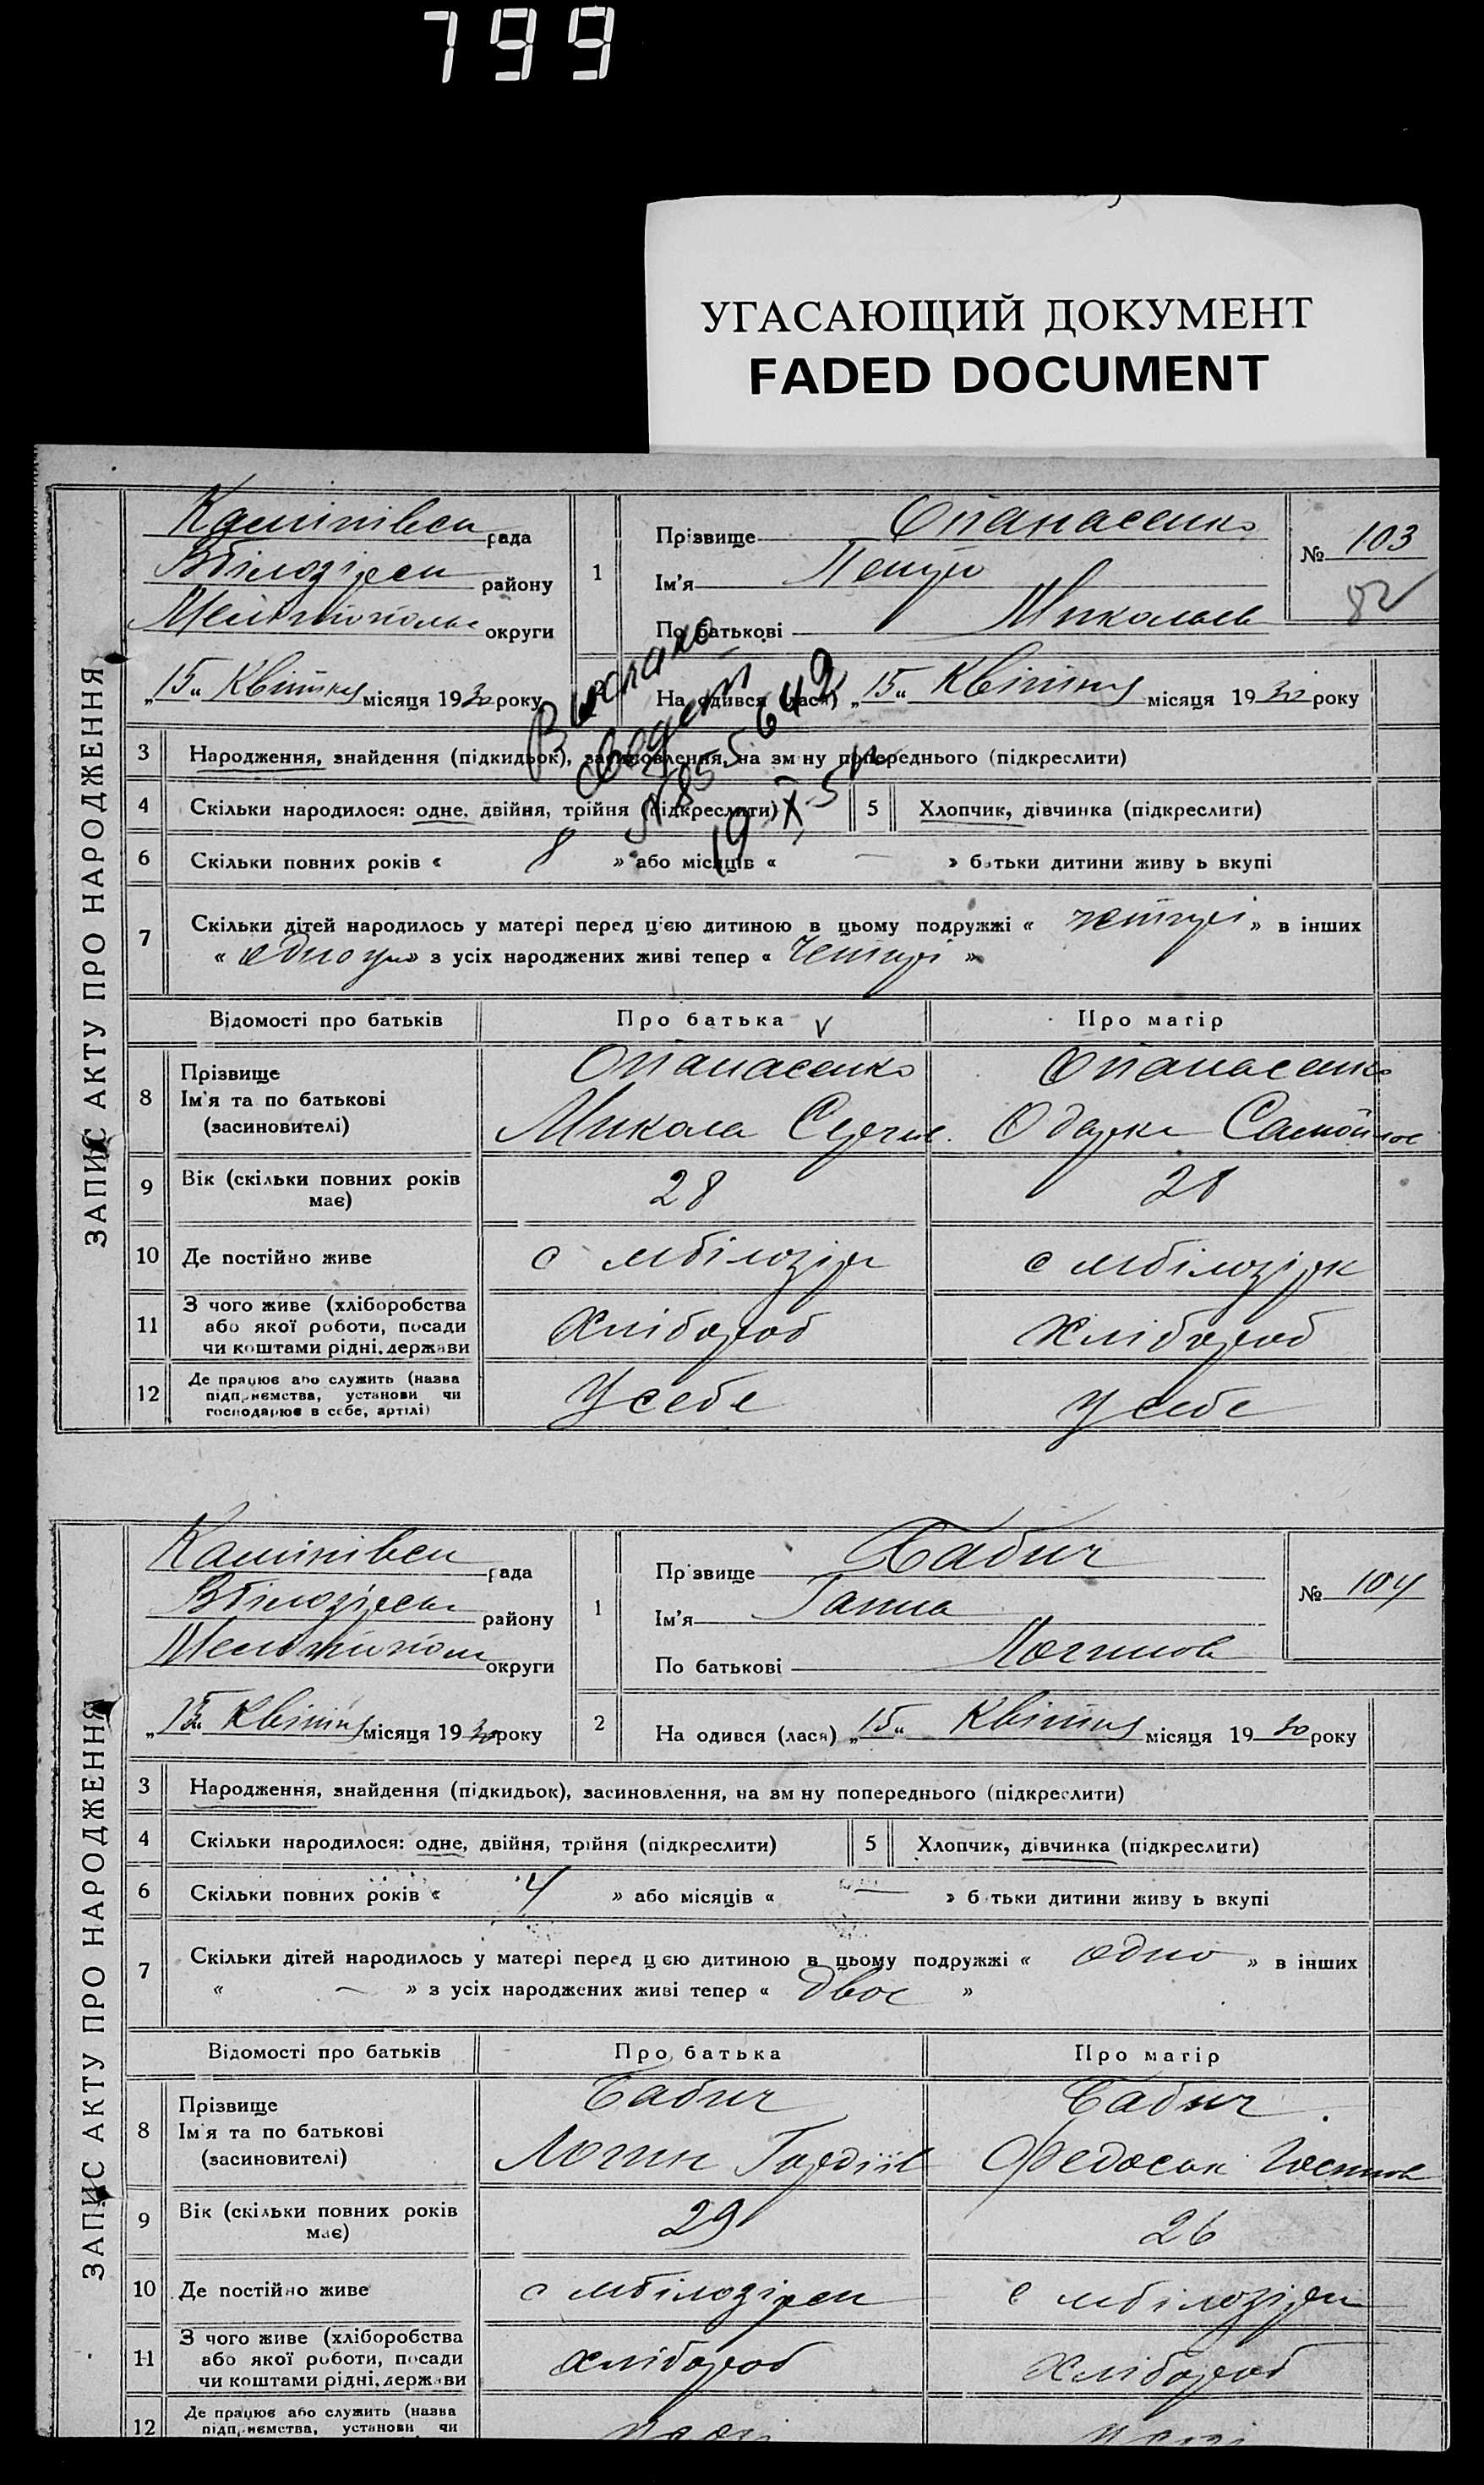 799
УГАСАЮЩИЙ ДОКУМЕНТ
FADED DOCUMENT
ЗАПИС АКТУ ПРО НАРОДЖЕННЯ
рада
району
округи
„15“ Квітня місяця 1930 року
1
Прізвище Опанасенко
Ім'я Петро
По батькові Миколаєв
№ 103
82
На одився (лася) „15“ Квітня місяця 1930 року
Видано
свидет
19 X 5
3 Народження, знайдення (підкидьок), засиновлення, на зм ну попереднього (підкреслити)
4 Скільки народилося: одне, двійня, трійня (підкреслити)
5 Хлопчик, дівчинка (підкреслити)
6 Скільки повних років « 8 » або місяців « — » батьки дитини живу ь вкупі
7 Скільки дітей народилось у матері перед ц'єю дитиною в цьому подружжі « четирі » в інших
« одно » з усіх народжених живі тепер « Четирі »
Відомості про батьків
Про батька V
Про матір
8 Прізвище
Ім'я та по батькові
(засиновителі)
Опанасенко
Микола Сергіїв.
Опанасенко
Одарка Самойлов
9 Вік (скільки повних років має)
28
28
10 Де постійно живе
с мбілозірк
с мбілозірк
11 З чого живе (хліборобства
або якої роботи, посади
чи коштами рідні, держави
Хлібороб
Хлібороб
12 Де працює або служить (назва
підпр-иємства, установи чи
господарює в себе, артілі)
У себе
у себе
ЗАПИС АКТУ ПРО НАРОДЖЕННЯ
рада
району
округи
„15“ Квітня місяця 1930 року
1
Пр звище Бабич
Ім'я Ганна
По батькові Логинов
№ 104
2
На одився (лася) „15“ Квітня місяця 1930 року
3 Народження, знайдення (підкидьок), засиновлення, на зм ну попереднього (підкреслити)
4 Скільки народилося: одне, двійня, трійня (підкреслити)
5 Хлопчик, дівчинка (підкреслити)
6 Скільки повних років « 4 » або місяців « — » б тьки дитини живу ь вкупі
7 Скільки дітей народилось у матері перед ц єю дитиною в цьому подружжі « одно » в інших
« — » з усіх народжених живі тепер « двоє »
Відомості про батьків
Про батька
Про матір
8 Прізвище
Ім'я та по батькові
(засиновителі)
Бабич
Логин Гордіїв
Бабич
Федоськ
9 Вік (скільки повних років має)
29
26
10 Де постійно живе
с мбілозірк
с мбілозірк
11 З чого живе (хліборобства
або якої роботи, посади
чи коштами рідні, держ ви
Хлібороб
Хлібороб
12 Де працює або служить (назва
підпр-иємства, установи чи